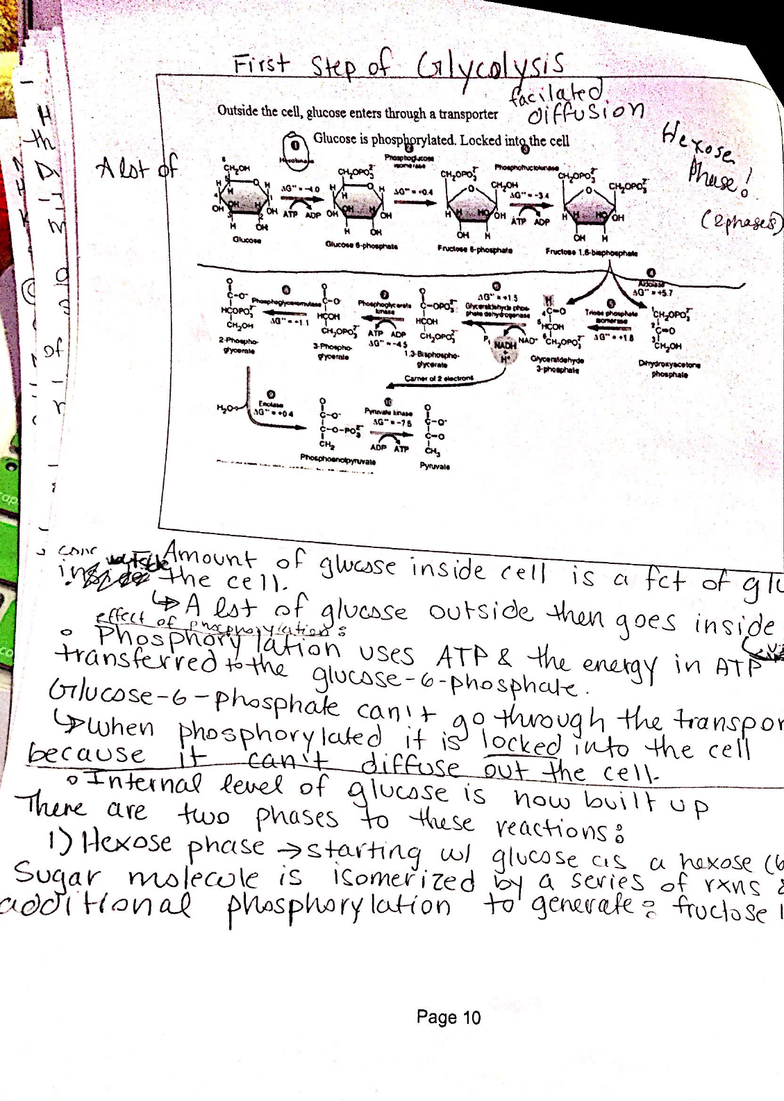 First Step of Glycolysis
Outside the cell, glucose enters through a transporter facilated diffusion
1 Glucose is phosphorylated. Locked into the cell
Hexose Phase!
(2 phases)
A lot of
Hexokinase
Phosphoglucose isomerase
Phosphofructokinase
CH₂OH
CH₂OPO₃⁻
CH₂OPO₃⁻
CH₂OH
CH₂OPO₃⁻
CH₂OPO₃⁻
ΔG°' = -4.0
ΔG°' = +0.4
ΔG°' = -3.4
ATP ADP
ATP ADP
Glucose
Glucose 6-phosphate
Fructose 6-phosphate
Fructose 1,6-bisphosphate
Aldolase
ΔG°' = +5.7
Phosphoglyceromutase
ΔG°' = +1.1
Phosphoglycerate kinase
ATP ADP
ΔG°' = -4.5
ΔG°' = +1.5
Glyceraldehyde phosphate dehydrogenase
Triose phosphate isomerase
ΔG°' = +1.8
NADH + H⁺
NAD⁺
2-Phosphoglycerate
3-Phosphoglycerate
1,3-Bisphosphoglycerate
Glyceraldehyde 3-phosphate
Dihydroxyacetone phosphate
Carrier of 2 electrons
H₂O
Enolase
ΔG°' = +0.4
Pyruvate kinase
ΔG°' = -7.5
ADP ATP
Phosphoenolpyruvate
Pyruvate
conc Amount of glucose inside cell is a fct of glu
inside the cell.
↳ A lot of glucose outside then goes inside
effect of phosphorylation:
° Phosphorylation uses ATP & the energy in ATP
transferred to the glucose-6-phosphate.
Glucose-6-phosphate can't go through the transpor
↳ When phosphorylated it is locked into the cell
because it can't diffuse out the cell.
° Internal level of glucose is now built up
There are two phases to these reactions:
1) Hexose phase → starting w/ glucose as a hexose (6
Sugar molecule is isomerized by a series of rxns &
additional phosphorylation to generate: fructose 1
Page 10